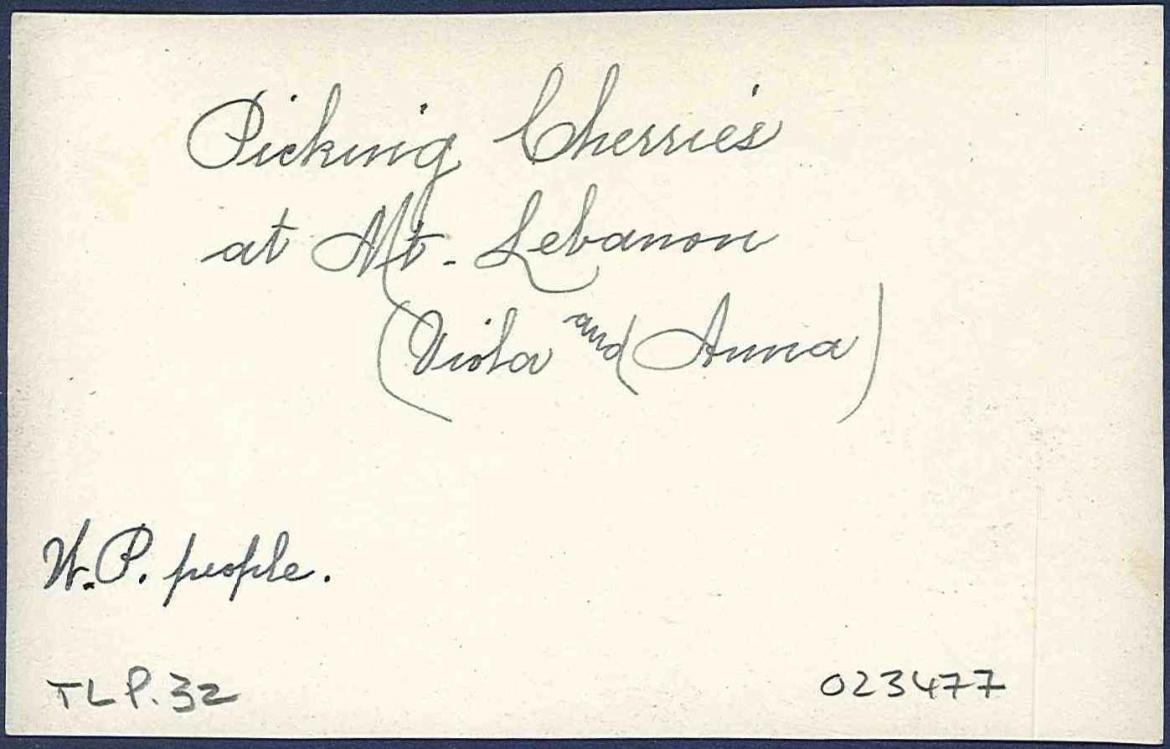 Picking Cherries
at Mt. Lebanon
(Viola and (Anna)
W.P. people.
TLP.32
023477